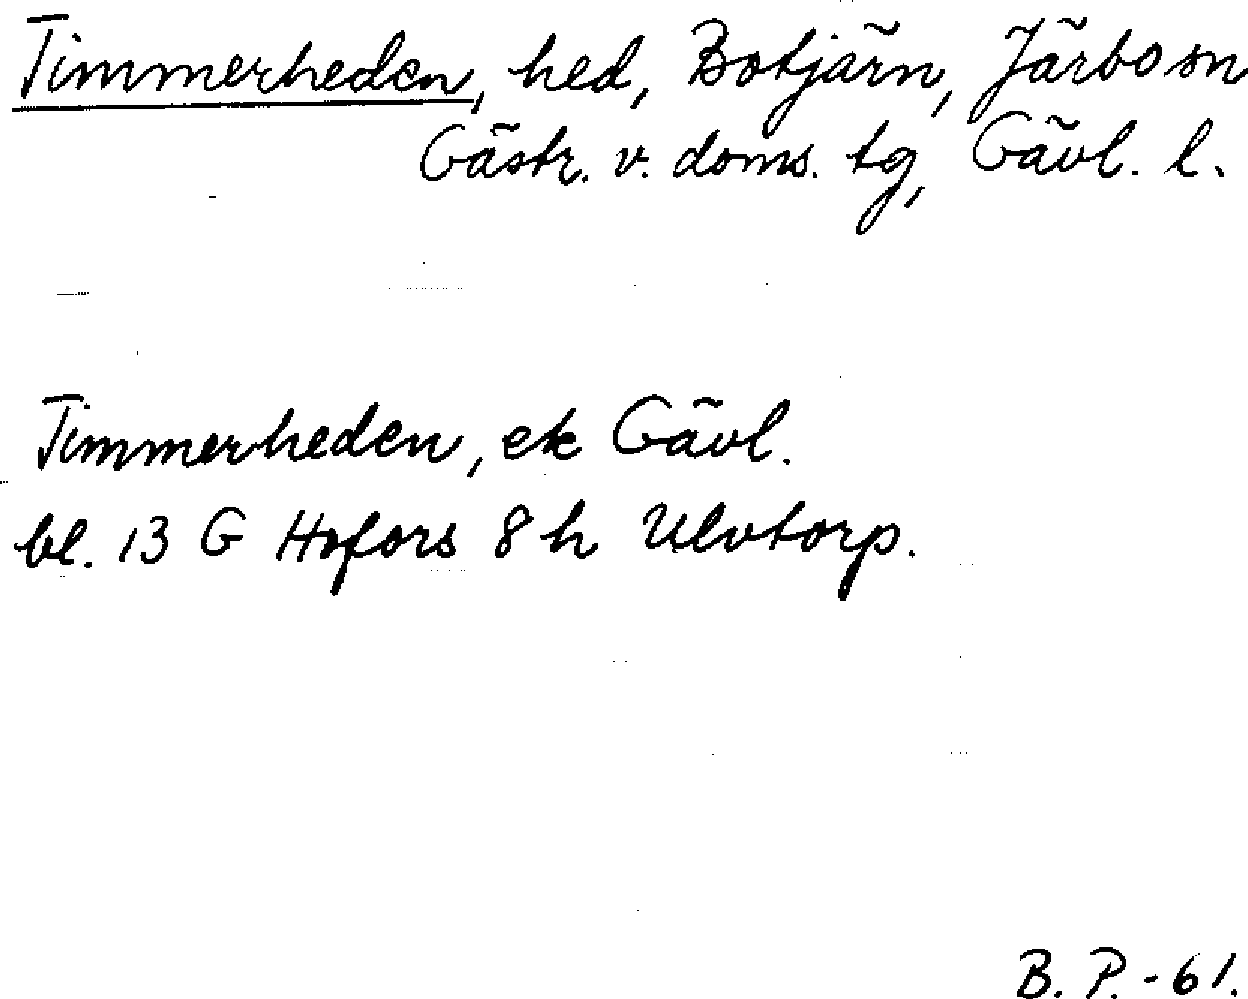 Timmerheden, hed, Botjärn, Järbo sn
Gästr. v. doms. tg, Gävl. l.
Timmerheden, ek Gävl.
bl. 13 G Hofors 8 h Ulvtorp.
B. P. - 61.